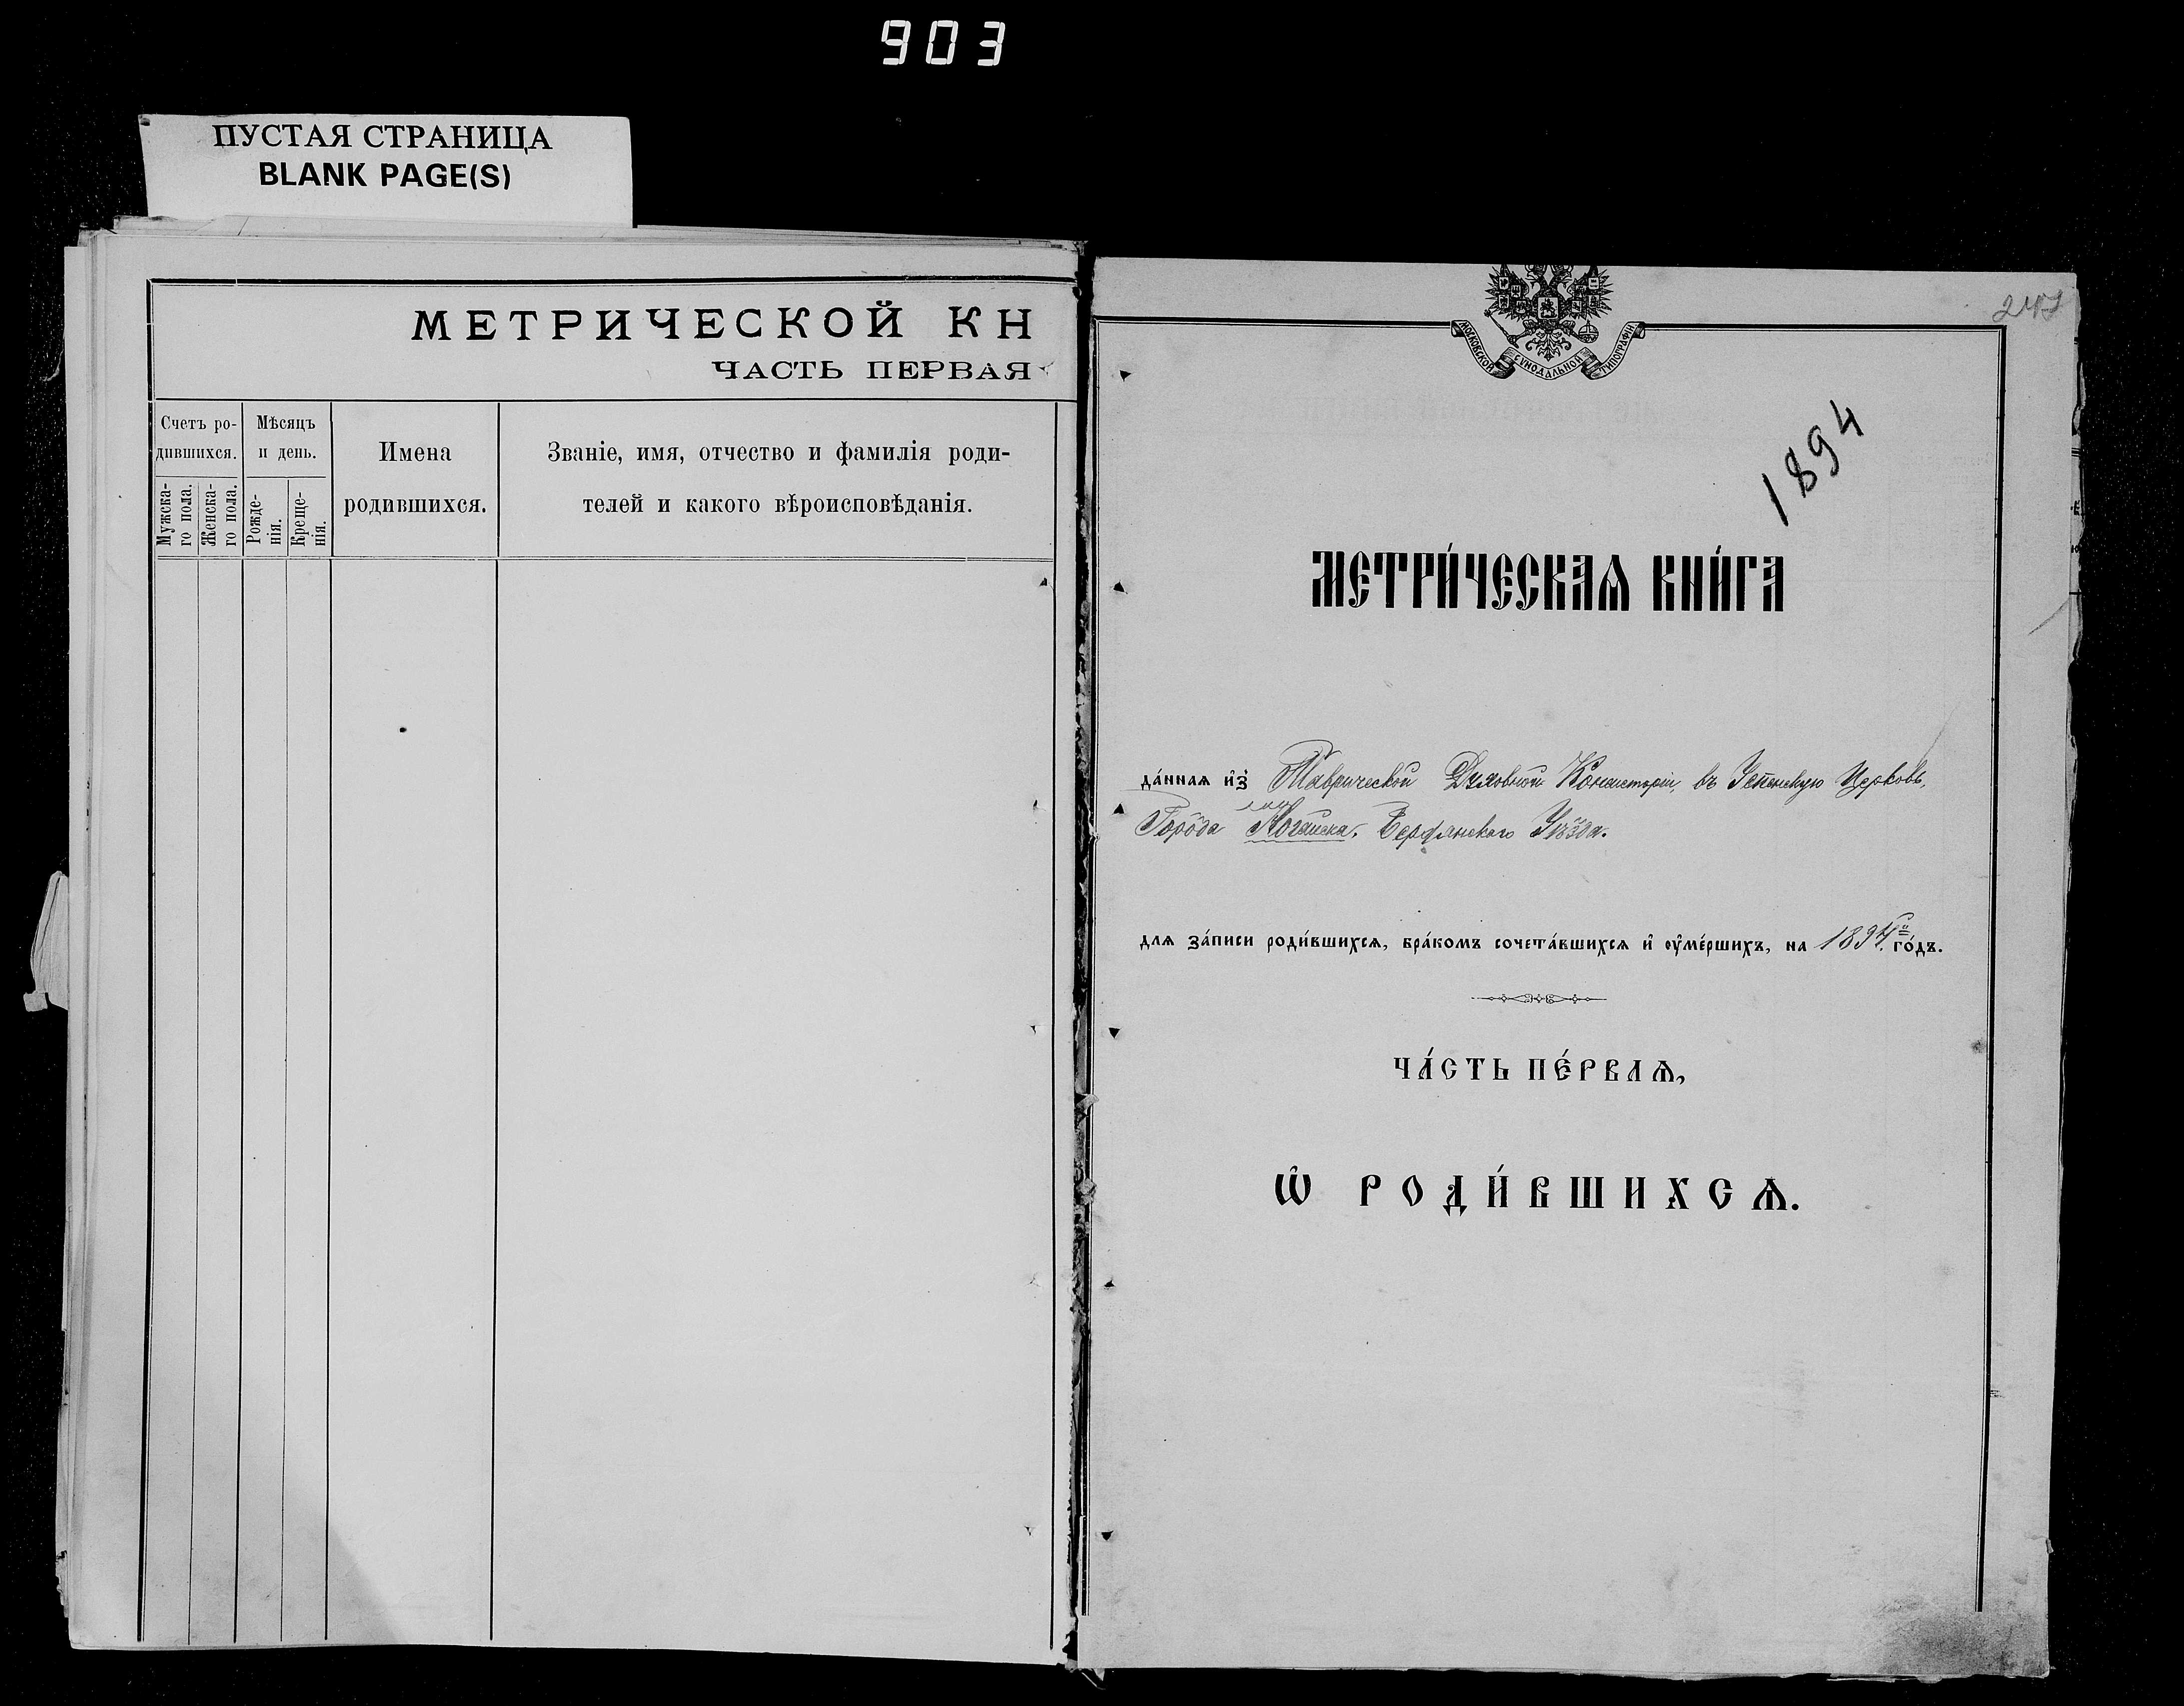 903
ПУСТАЯ СТРАНИЦА
BLANK PAGE(S)
МЕТРИЧЕСКОЙ КН
ЧАСТЬ ПЕРВАЯ
Счетъ ро-
дившихся.
Мужска-
го пола.
Женска-
го пола.
Мѣсяцъ
и день.
Рожде-
нія.
Креще-
нія.
Имена
родившихся.
Званіе, имя, отчество и фамилія роди-
телей и какого вѣроисповѣданія.
МОСКОВСКОЙ СѴНОДАЛЬНОЙ ТИПОГРАФІИ
1894
МЕТРИ́ЧЕСКАѦ КНИ́ГА
да́ннаѧ и҆з̾ Таврической Духовной Консисторіи, въ Успенскую Церковь,
Города Ногайска, Бердянскаго Уѣзда.
длѧ за́писи роди́вшихсѧ, бра́комъ сочета́вшихсѧ и҆ оу҆ме́ршихъ, на 1894й го́дъ.
ЧА́СТЬ ПЕ́РВАѦ,
Ѽ РОДИ́ВШИХСѦ.